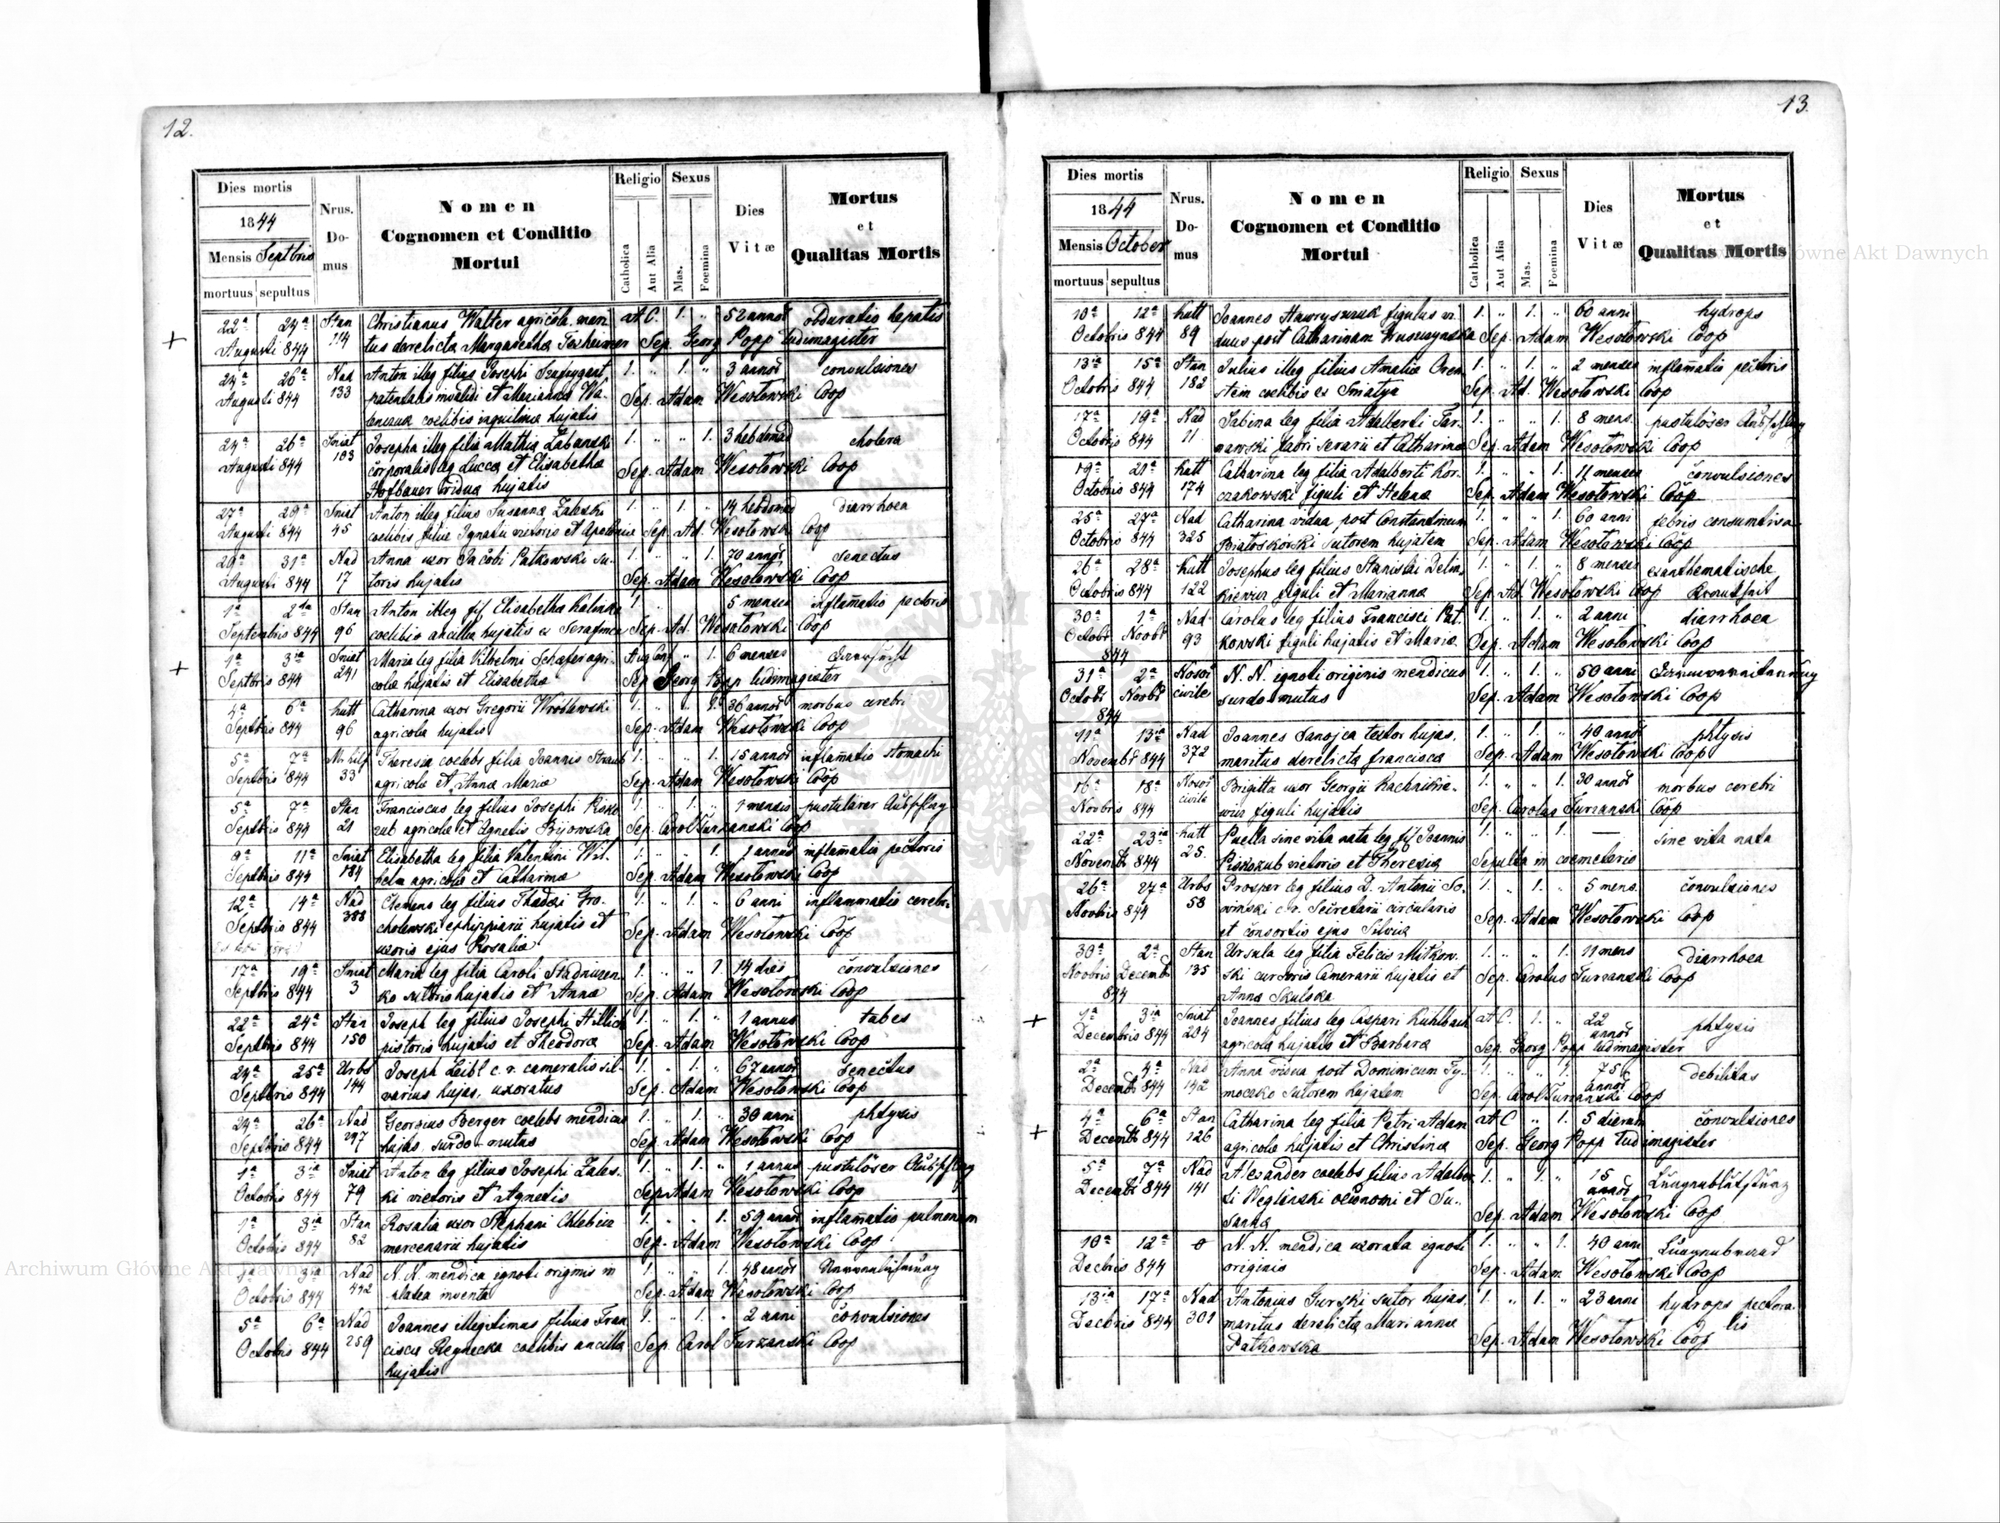 12.
Dies mortis
1844
Mensis Septbris
mortuus sepultus
Nrus.
Do-
mus
Nomen
Cognomen et Conditio
Mortui
Religio
Catholica
Aut Alia
Sexus
Mas.
Foemina
Dies
Vitæ
Mortus
et
Qualitas Mortis
22a 24a Stan Christianus Walter agricola mari A.C. 1. " 52 annor obduratio hepatis
Augusti 844 114 tus derelicta Margaretha Sep. Georg Popp ludimagister
24a 26a Nad Anton illeg filius Josephi 1. " 1. " 3 annor convulsiones
Augusti 844 133 patentalis invalidi et Marianna Wa- Sep. Adam Wesołowski Coop
coelibis inquilinæ hujatis
24a 26a Sniat Josepha illeg filia Mathia 1. " " 1. 3 hebdomad cholera
Augusti 844 103 corporalis leg Lucca et Elisabetha Sep. Adam Wesołowski Coop
Hofbauer vidua hujatis
27a 29a Sniat Anton illeg filius Susanna Zaleski 1. " 1. " 14 hebdomad diarrhoea
Augusti 844 45 coelibis filiæ Ignatii victoris et Apolonia Sep. Ad. Wesołowski Coop
29a 31a Nad Anna uxor Jacobi Patkowski su- 1. " " 1. 70 annor senectus
Augusti 844 17 toris hujatis Sep. Adam Wesołowski Coop
1a Stan Anton illeg fil Elisabetha Kalinka 1. 5 menses inflam̄atio pectoris
Septembris 844 96 coelibis ancilla hujatis ex Serafince Sep. Ad. Wesołowski Coop
1a 3ia Sniat Maria leg filia Vilhelmi Schæfer agri- Aug Conf " 1. 6 menses
Septbris 844 241 colæ hujatis et Elisabetha Sep Georg Popp ludimagister
4a 6a hutt Catharina uxor Gregorii Wróblewski 1. " " 1. 36 annor morbus cerebri
Septbris 844 96 agricolæ hujatis Sep. Adam Wesołowski Coop
5a 7a Theresia coelebs filia Joannis Straub 1. " " 1. 15 annor inflam̄atio stomachi
Septbris 844 33 agricolæ et Anna Maria Sep. Adam Wesołowski Coop
5a 7a Stan Franciscus leg filius Josephi 1. " 1. " 1 mensis
Septbris 844 21 zub agricolæ et Agnetis Bijowska Sep. Carol Turzanski Coop
9a 11a Sniat Elisabetha leg filia Valentini Wil- 1. " " 1. 1 annus inflam̄atio pectoris
Septbris 844 184 helm agricolæ et Catharina Sep. Adam Wesołowski Coop
12a 14a Nad Clemens leg filius Thadæi Gro- 1. " 1. " 6 anni inflammatio cerebri
Septbris 844 388 cholewski ephippiarii hujatis et Sep. Adam Wesołowski Coop
uxoris ejus Rosalia
17a 19a Sniat Maria leg filia Caroli Stadniczen- 1. " " 1 14 dies convulsiones
Septbris 844 3 ko hujatis et Anna Sep. Adam Wesołowski Coop
22a 24a Stan Joseph leg filius Josephi Hillich 1. " 1. " 1 annus tabes
Septbris 844 150 pistoris hujatis et Theodora Sep. Adam Wesołowski Coop
24a 25a Urbs Joseph Leibl c. r. cameralis sil- 1. " 1. " 67 annor senectus
Septbris 844 144 varius hujas, uxoratus Sep. Adam Wesołowski Coop
24a 26a Nad Georgius Berger coelebs mendicus 1. " 1. " 30 anni phtysis
Septbris 844 297 hujas surdo-mutus Sep. Adam Wesołowski Coop
1a 3ia Sniat Anton leg filius Josephi Zales- 1. " 1. " 1 annus
Octobris 844 79 ki victoris et Agnetis Sep Adam Wesołowski Coop
1a 3ia Stan Rosalia uxor Stephani Chlebica 1. " " 1. 59 annor inflam̄atio pulmonum
Octobris 844 82 mercenarii hujatis Sep. Adam Wesołowski Coop
3ia Nad N. N. mendica ignoti originis in 1. " " 1. 48 annor
Octobris 844 442 platea inventa Sep. Adam Wesołowski Coop
5a 6a Nad Joannes illegitimus filius Fran 1. " 1. " 2 anni convulsiones
Octobris 844 259 cisca Regnecka coelibis ancilla Sep. Carol Turzanski Coop
hujatis
13.
Dies mortis
1844
Mensis October
mortuus sepultus
Nrus.
Do-
mus
Nomen
Cognomen et Conditio
Mortui
Religio
Catholica
Aut Alia
Sexus
Mas.
Foemina
Dies
Vitæ
Mortus
et
Qualitas Mortis
10a 12a hutt Joannes Hawryszczuk figulus vi- 1. " 1. " 60 anni hydrops
Octobris 844 89 duus post Catharinam Sep. Adam Wesołowski Coop
13ia 15a Stan Julius illeg filius Amalia 1. " 1. " 2 menses inflam̄atio pectoris
Octobris 844 182 coelibis ex Sniatyn Sep. Ad. Wesołowski Coop
17a 19a Nad Sabina leg filia Adalberti Tar- 1. " " 1. 8 mens.
Octobris 844 11 nawski fabri serarii et Catharina Sep. Adam Wesołowski Coop
19a 21a hutt Catharina leg filia Adalberti Kor- 1. " " 1. 11 menses convulsiones
Octobris 844 174 czakowski figuli et Helena Sep. Adam Wesołowski Coop
25a 27a Nad Catharina vidua post Constantinum 1. " " 1. 60 anni febris consumtiva
Octobris 844 325 Białoskórski sutorem hujatem Sep. Adam Wesołowski Coop
26a 28a hutt Josephus leg filius Stanislai 1. " 1. " 8 menses exanthematische
Octobris 844 122 figuli et Marianna Sep. Ad. Wesołowski Coop Krankheit
30a 1a Nad Carolus leg filius Francisci Pat- 1. " 1. " 2 anni diarrhoea
Octobr Novbr 93 kowski figuli hujatis et Maria Sep. Adam Wesołowski Coop
844
31a 2a Nosoc N. N. ignoti originis mendicus 1. " 1. " 50 anni
Octobr Novbr civile surdo-mutus Sep. Adam Wesołowski Coop
844
11a 13ia Nad Joannes Sanojca textor hujas, 1. " 1. " 40 annor phtysis
Novembr 844 372 maritus derelicta francisca Sep. Adam Wesołowski Coop
16a 18a Nosoc Brigitta uxor Georgii 1. " " 1. 30 annor morbus cerebri
Novbris 844 civile figuli hujatis Sep. Carolus Turzanski Coop
22a 23ia hutt Puella sine vita nata leg fil Joannis 1. " " 1. — sine vita nata
Novembr 844 25. victoris et Theresia Sepulta in coemeterio
26a 27a Urbs Prosper leg filius D. Antonii So- 1. " 1. " 5 mens. convulsiones
Novbris 844 58 winski c. r. Secretarii circularis Sep. Adam Wesołowski Coop
et consortis ejus Silvia
30a 2a Stan Ursula leg filia Felicis Mitkow- 1. " " 1. 11 mens diarrhoea
Novbris Decembr 135 ski cursoris Camerarii hujatis et Sep. Carolus Turzanski Coop
844 Anna Skulska
1a 3ia Sniat Joannes filius leg Caspari Kuhlbach A.C. 1. " 22 annor phtysis
Decembris 844 204 agricola hujatis et Barbara Sep. Georg Popp ludimagister
2a 4a Nad Anna vidua post Dominicum Ty- 1. " " 1. 75 annor debilitas
Decembr 844 142 moczko sutorem hujatem Sep. Carol Turzanski Coop
4a 6a Stan Catharina leg filia Petri Adam A.C " " 1. 5 dierum convulsiones
Decembr 844 126 agricolæ hujatis et Christina Sep. Georg Popp ludimagister
5a 7a Nad Alexander coelebs filius Adalber 1. " 1. " 15 annor
Decembr 844 141 ti Weglinski oeconomi et Su- Sep. Adam Wesołowski Coop
sanna
10a 12a 0 N. N. mendica uxorata ignoti 1. " " 1. 40 anni
Decbris 844 originis Sep. Adam Wesołowski Coop
13ia 17a Nad Antonius Gurski sutor hujas, 1. " 1. " 23 anni hydrops pectora-
Decbris 844 301 maritus derelicta Marianna Sep. Adam Wesołowski Coop lis
Patkowska
Archiwum Główne Akt Dawnych